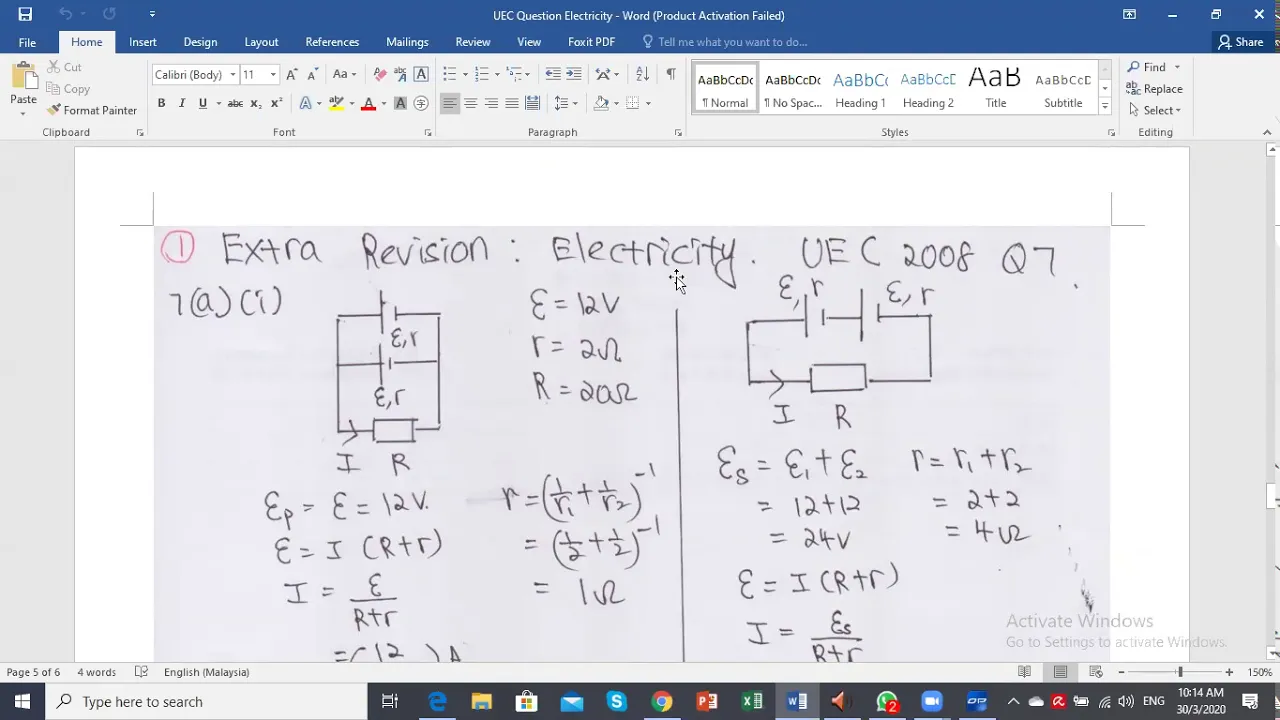 UEC Question Electricity - Word (Product Activation Failed)
File Home Insert Design Layout References Mailings Review View Foxit PDF Tell me what you want to do... Share
Paste
Cut
Copy
Format Painter
Clipboard
Calibri (Body) 11
B I U abc X₂ X²
Font
Paragraph
AaBbCcDc AaBbCcDc AaBbCc AaBbCcD AaB AaBbCcD
¶ Normal ¶ No Spac... Heading 1 Heading 2 Title Subtitle
Styles
Find
Replace
Select
Editing
① Extra Revision : Electricity. UEC 2008 Q7
7(a)(i)
ε,r
ε,r
I R
ε = 12V
r = 2Ω
R = 20Ω
εp = ε = 12V.
ε = I (R+r)
I = ε/(R+r)
=(12 )A
r = (1/r₁ + 1/r₂)⁻¹
= (1/2 + 1/2)⁻¹
= 1Ω
ε,r ε,r
I R
εs = ε₁ + ε₂
= 12+12
= 24V
r = r₁ + r₂
= 2+2
= 4Ω
ε = I (R+r)
I = εs/(R+r)
Activate Windows
Go to Settings to activate Windows.
Page 5 of 6 4 words English (Malaysia) 150%
Type here to search
2
ENG
10:14 AM
30/3/2020